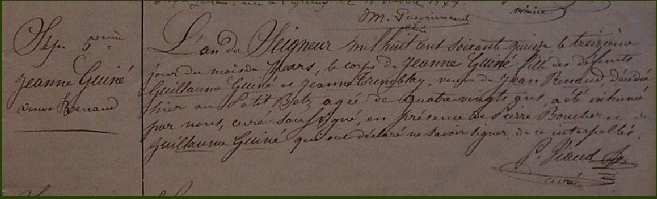 Sép. 5me
Jeanne Guiné
veuve Renaud
L'an du Seigneur mil huit cent soixante quinze le treizième
jour du mois de Mars, le corps de Jeanne Guiné fille des défunts
Guillaume Guiné et Jeanne Tremblay, veuve de Jean Renaud décédée
hier au Petit Betz agée de quatre-vingts ans a été inhumé
par nous, curé soussigné, en présence de Pierre Boucher et de
Guillaume Guiné qui ont déclaré ne savoir signer de ce interpellés.
curé